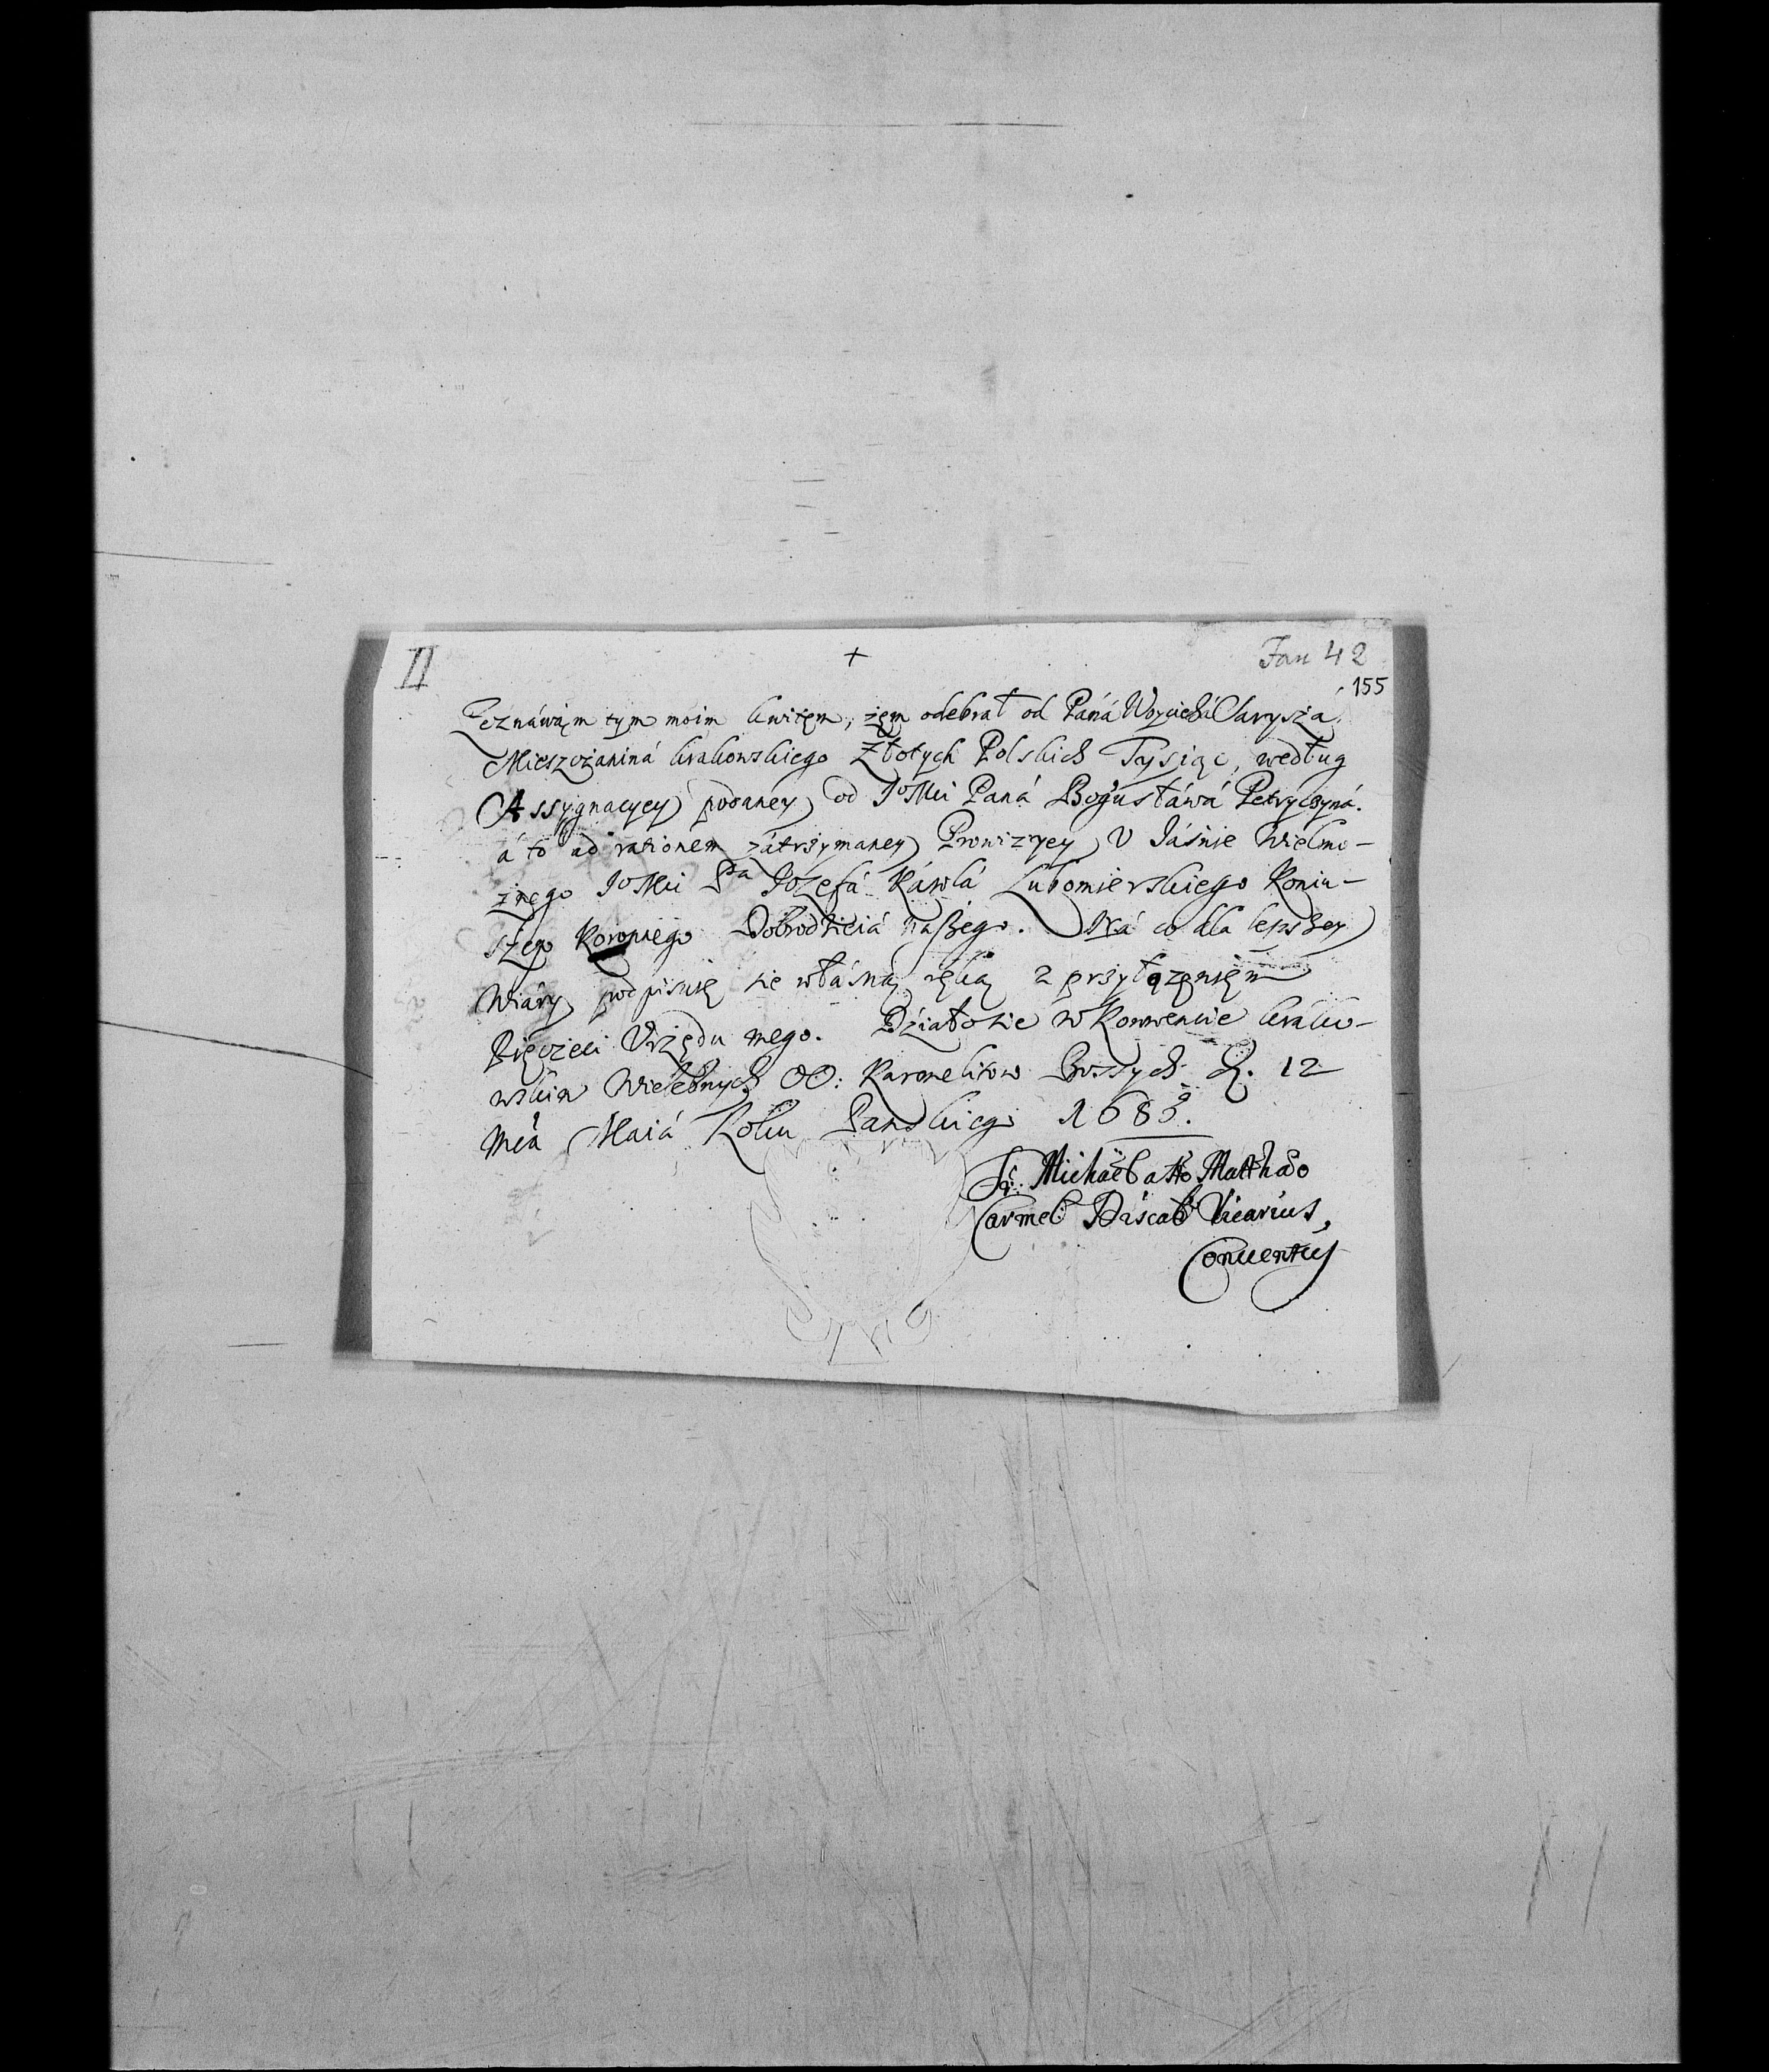 II
+
Fan 42
155
Zeznáwąm tym moim kwitęm, żęm odebrał od Páná Woyciechá Sarysza
Mieszczániná krakowskiego Złotych Polskich Tysiąc, według
Assygnacyey podaney od JoMci Páná Bogusłáwá Petrycyná.
á to ad rationem zátrzymaney Prowizyey V Jáśnie Wielmo-
żnęgo JoMci Pa Józefá Károlá Lubomierskiego Koniu-
szego Koronnego Dobrodzieiá nászego. Ná co dla lepszey
Wiáry podpisuię sie włásną ręką z przyłązęnięm
Pięczęci Vrzędu mego. Działo sie w Konwencie krako-
wskim Wielebnych OO: Karmelitow Bossych D. 12
Mca Maiá Roku Panskiego
Fr: Michael a Sto Matthæo
Carmel: Discal: Vicarius
Conuentus